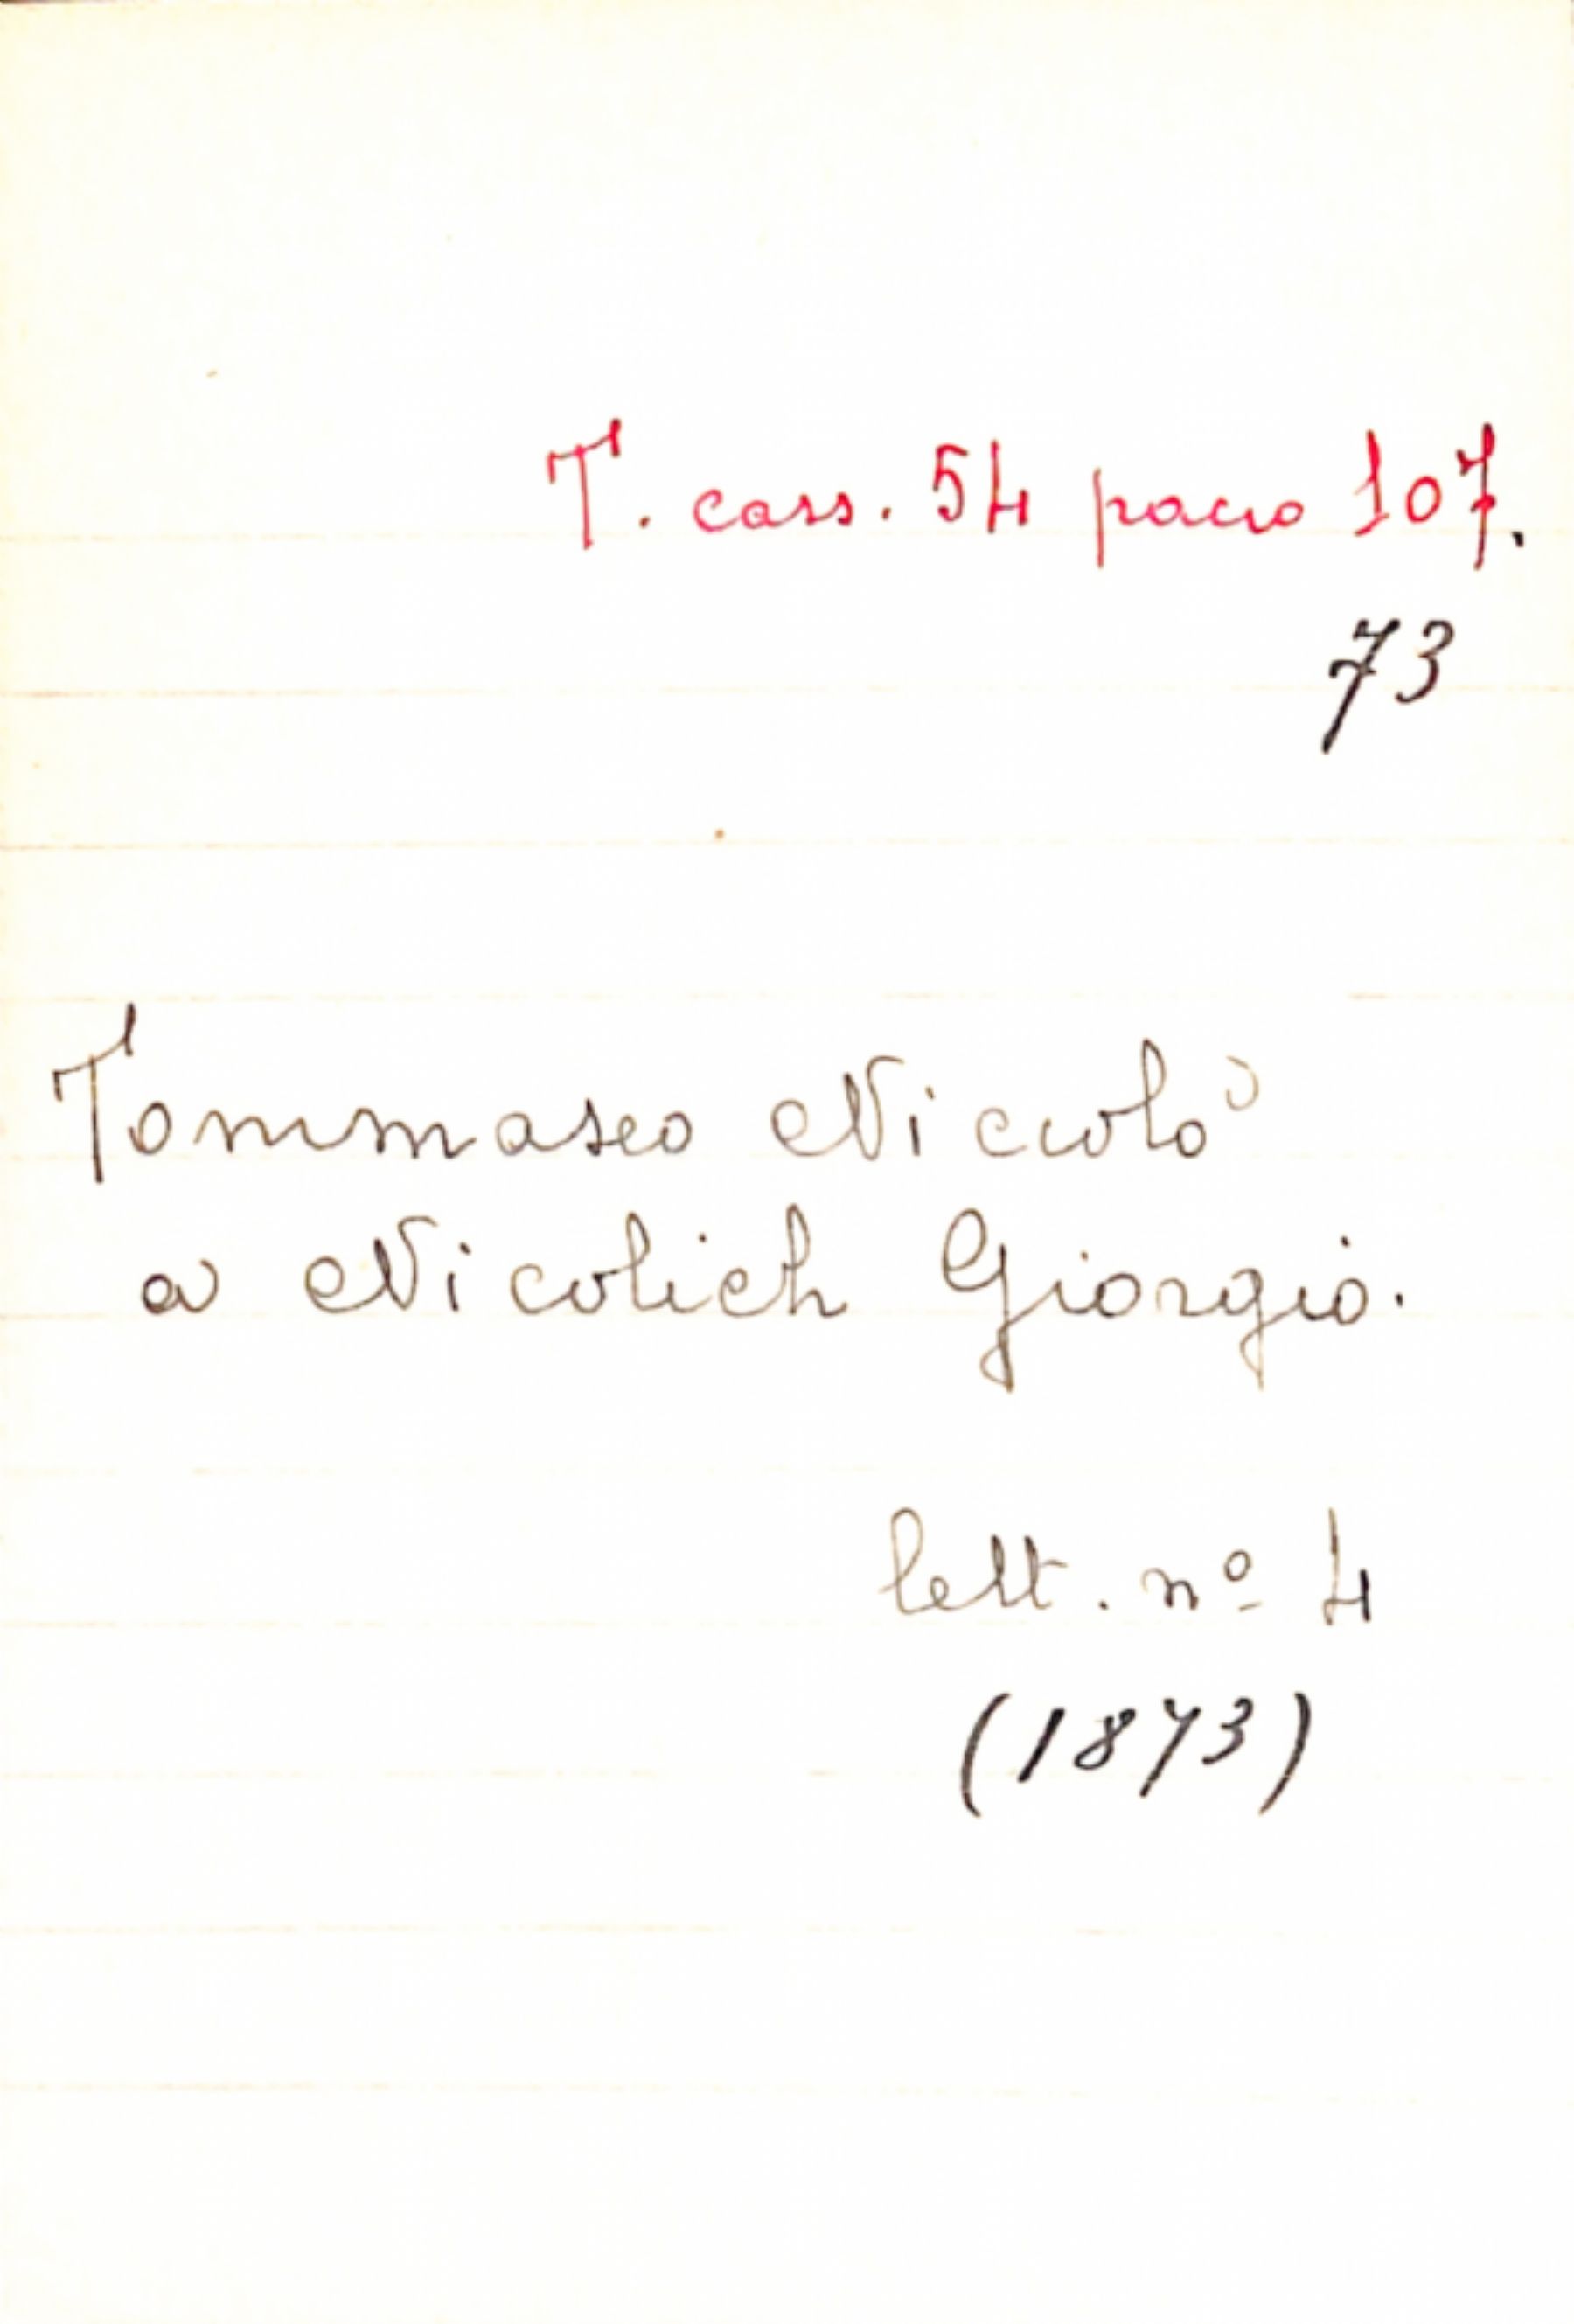 T. cass. 54 pacco 107.
73
Tommaseo Niccolò
a Nicolich Giorgio.
lett. nº 4
(1873)